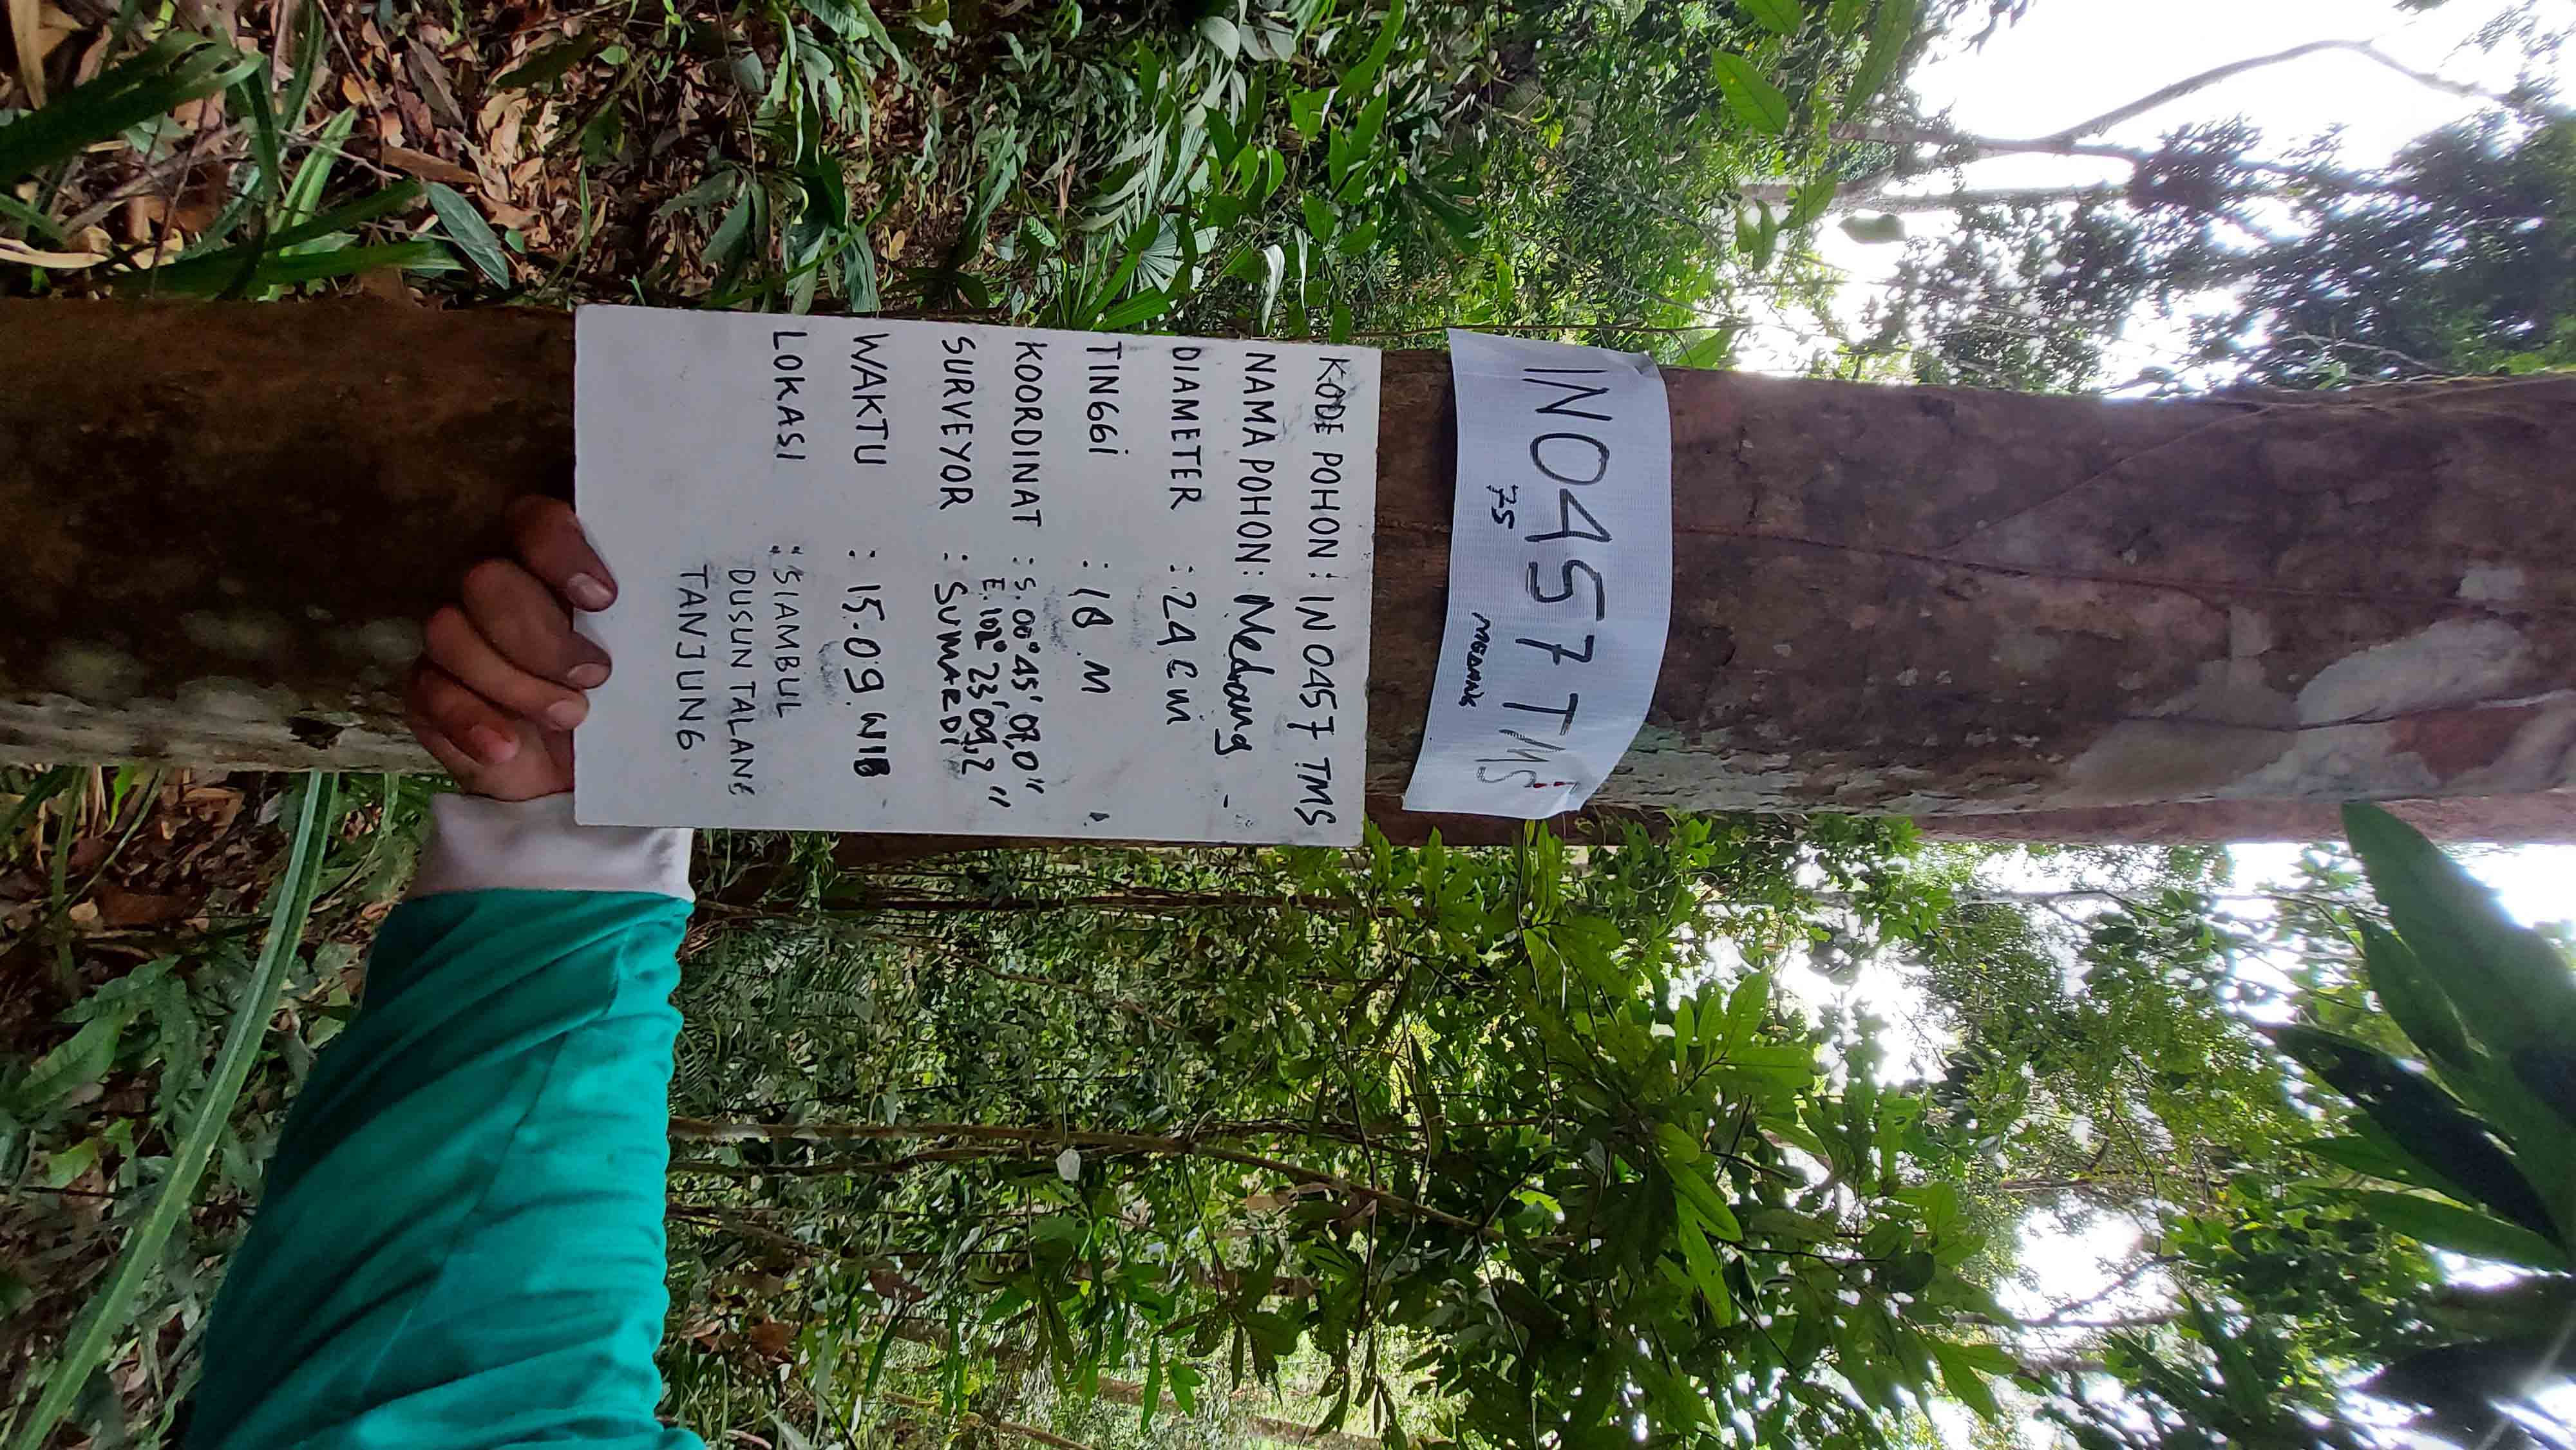 IN0457 TMS
75 MEDANG
KODE POHON : IN 0457 TMS
NAMA POHON : Medang -
DIAMETER : 24 cm
TINGGI : 18 M
KOORDINAT : S. 00° 45' 07,0"
E. 102° 23' 09,2"
SURVEYOR : SUMARDI
WAKTU : 15.09 WIB
LOKASI : SIAMBUL
DUSUN TALANG
TANJUNG